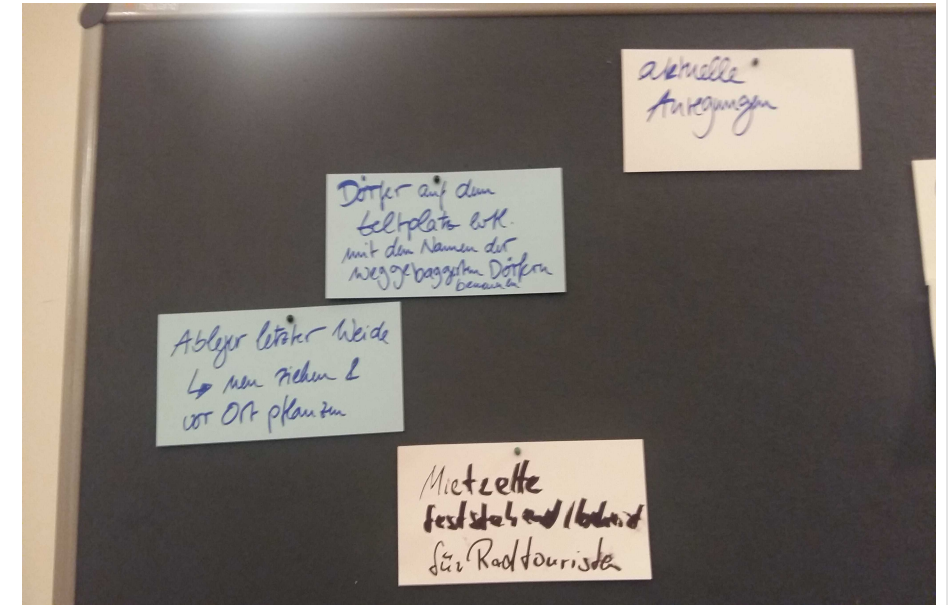 aktuelle
Anregungen
Dörfer auf dem
Zeltplatz evtl.
mit den Namen der
weggebaggerten Dörfern
benennen
Ableger letzter Weide
↳ neu ziehen &
vor Ort pflanzen
Mietzelte
feststehend /
für Radtouristen